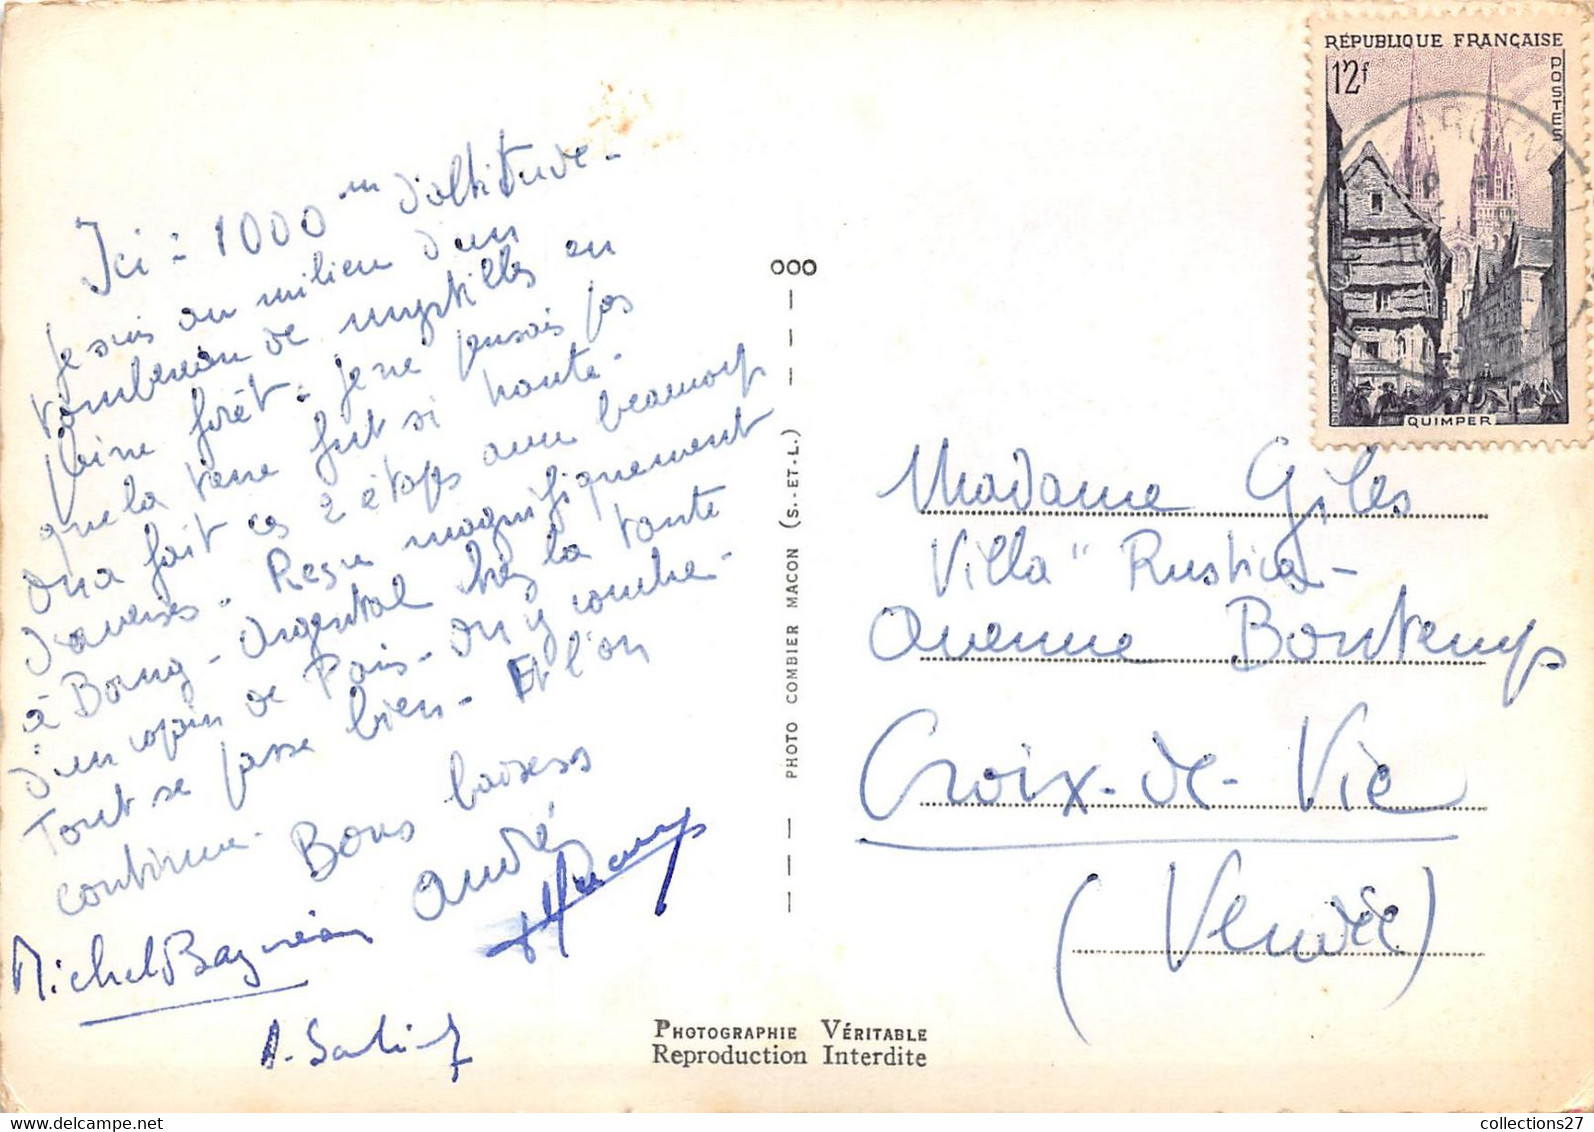 Ici : 1000 m d'altitude -
Je suis au milieu d'un
tombereau de myrtilles en
pleine forêt - je ne pensais pas
que la terre fut si haute -
On a fait ces 2 étapes avec beaucoup
Reçu magnifiquement
à Bourg-Argental chez la tante
d'un copain de Paris - On y couche -
Tout se passe bien - Et l'on
continue - Bons baisers
André
Michel
A.
OOO
PHOTO COMBIER MACON (S.-ET-L.)
PHOTOGRAPHIE VÉRITABLE
Reproduction Interdite
RÉPUBLIQUE FRANÇAISE
12f
POSTES
QUIMPER
Madame Giles
Villa "Rustica -
Avenue Bontemps
Croix-de-Vie
(Vendée)
collections27